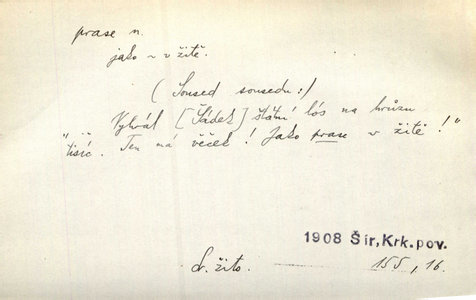 prase n.
jako ~ v žitě.
(Soused sousedu:)
„.. Vyhrál [Šádek] státní lós na hrůzu
tisíc. Ten má věček! Jako prase v žitě!"
1908 Šír, Krk. pov.
155, 16.
žito.